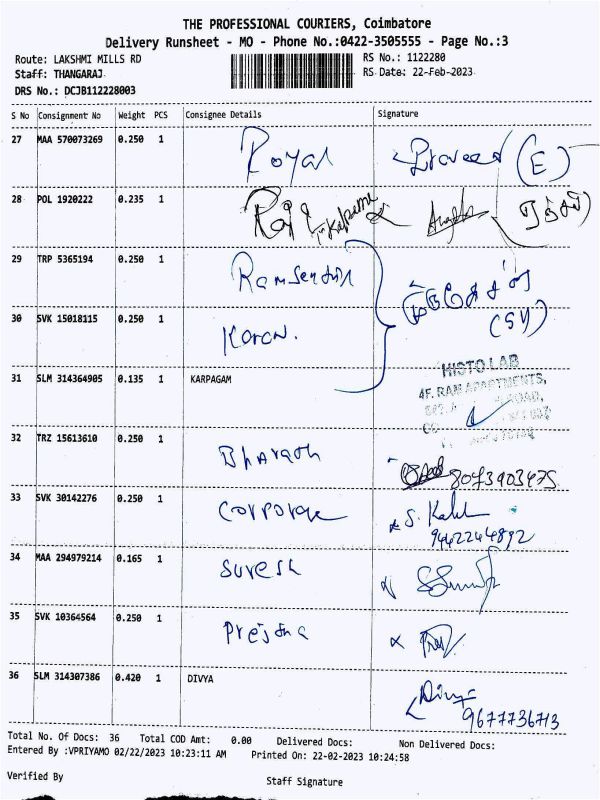 THE PROFESSIONAL COURIERS, Coimbatore
Delivery Runsheet - MO - Phone No.:0422-3505555 - Page No.:3
Route: LAKSHMI MILLS RD
RS No.: 1122280
Staff: THANGARAJ
RS Date: 22-Feb-2023
DRS No.: DCJB112228003
S No Consignment No Weight PCS Consignee Details Signature
27 MAA 570073269 0.250 1 Royal Praveen (E)
28 POL 1920222 0.235 1 Raj
29 TRP 5365194 0.250 1 Ramsenthil
30 SVK 15018115 0.250 1 Karan. (SY)
31 SLM 314364905 0.135 1 KARPAGAM
HISTO LAB
4F, RAM APARTMENTS,
32 TRZ 15613610 0.250 1 Bharath 8043903475
33 SVK 30142276 0.250 1 Corporate S. Kala
9442244892
34 MAA 294979214 0.165 1 Suresh
35 SVK 10364564 0.250 1
36 SLM 314307386 0.420 1 DIVYA Divya
9677736713
Total No. Of Docs: 36 Total COD Amt: 0.00 Delivered Docs: Non Delivered Docs:
Entered By :VPRIYAMO 02/22/2023 10:23:11 AM Printed On: 22-02-2023 10:24:58
Verified By Staff Signature